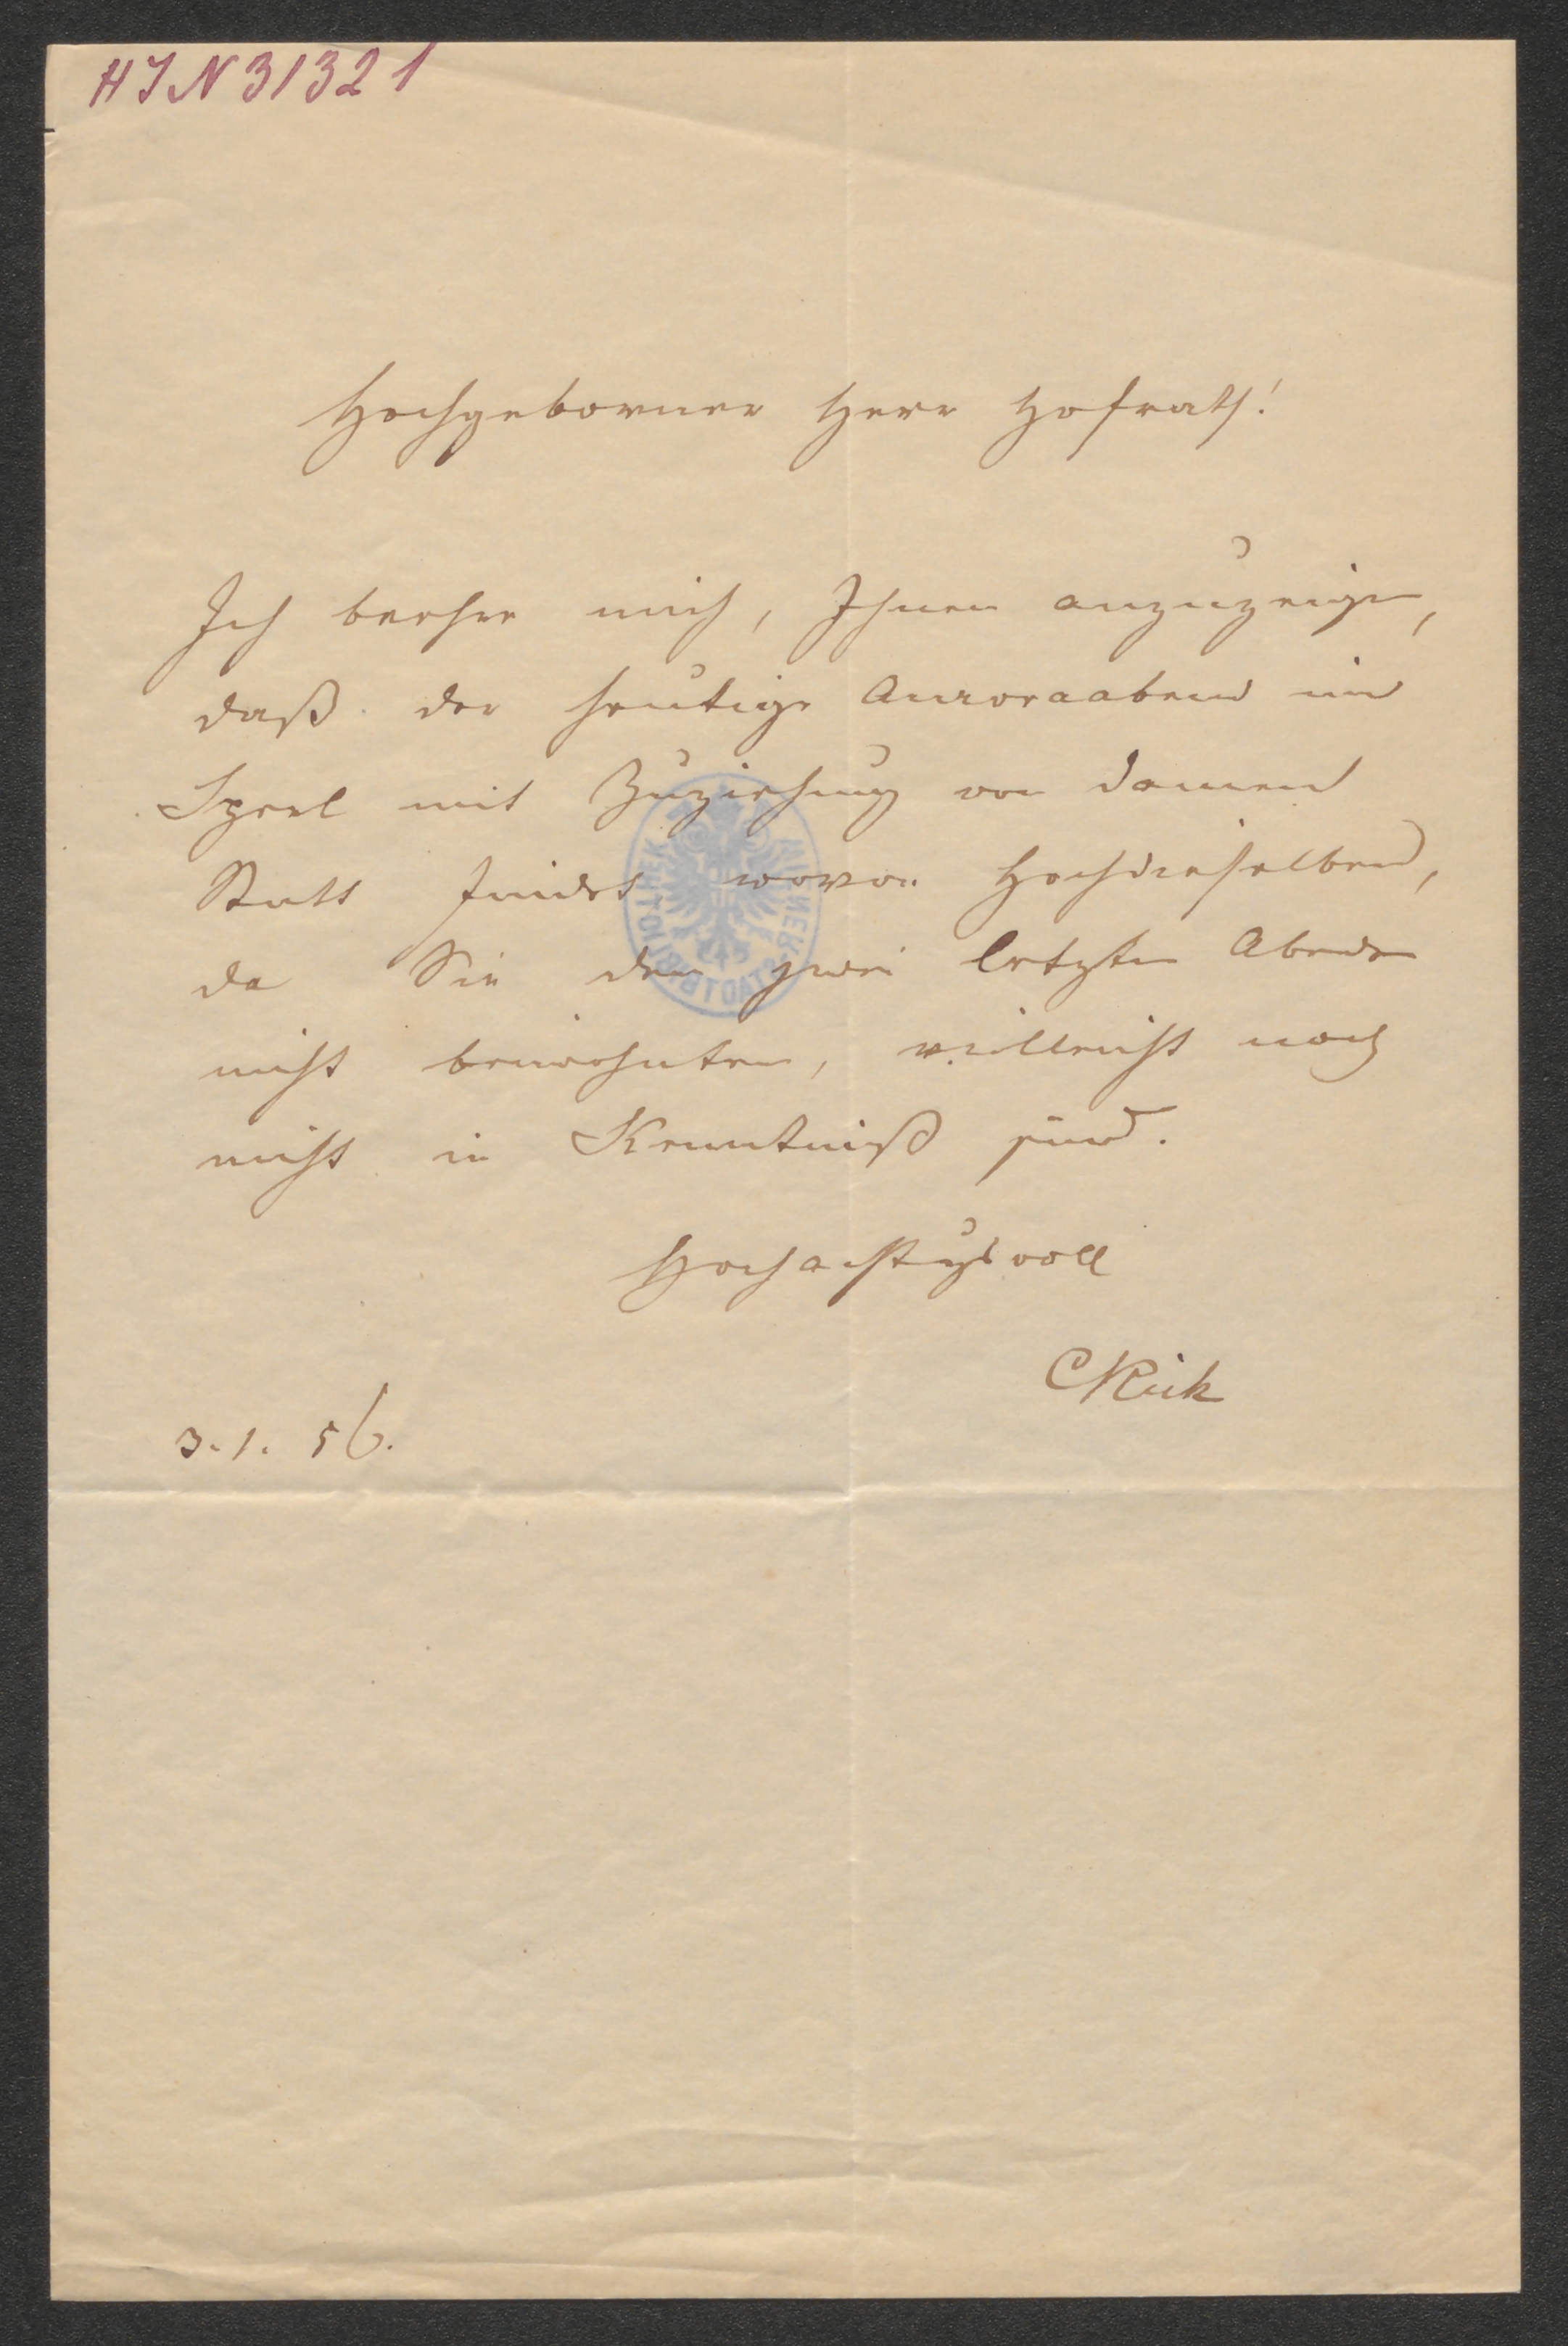 HJN 31321
Hochgeborner Herr Hofrath!
Ich beehre mich, Ihnen anzuzeigen,
daß der heutige Auroraabend im
Sperl mit Zuziehung von Damen
Statt findet wovon Hochdieselben,
da Sie den zwei letzten Abenden
nicht beiwohnten, vielleicht noch
nicht in Kenntniß sind.
Hochachtungsvoll
3. 1. 56.